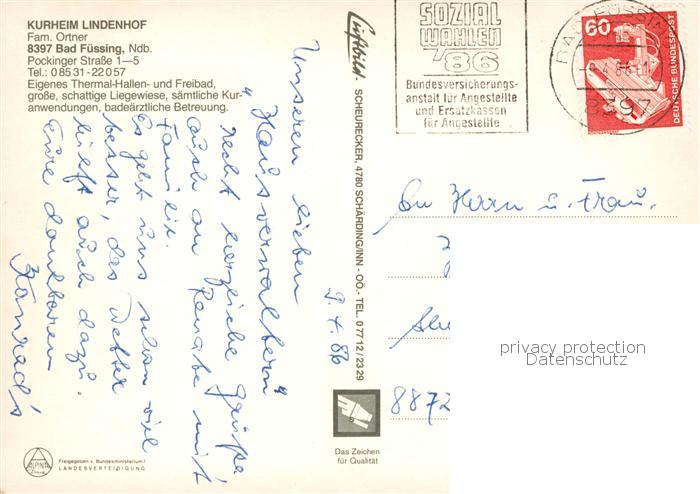 KURHEIM LINDENHOF
Fam. Ortner
8397 Bad Füssing, Ndb.
Pockinger Straße 1–5
Tel.: 0 85 31 - 22 0 57
Eigenes Thermal-Hallen- und Freibad,
große, schattige Liegewiese, sämtliche Kur-
anwendungen, badeärztliche Betreuung.
Unseren lieben
"Hausverwaltern"
recht herzliche Grüße
auch an Renate mit
Familie.
Es geht uns schon viel
besser, das Wetter
hilft auch dazu.
Eure dankbaren
Konrad's
9.4.86
Luftbild SCHEURECKER, 4780 SCHÄRDING/INN - OÖ.- TEL. 0 77 12 / 23 29
SOZIAL
WAHLEN
'86
Bundesversicherungs-
anstalt für Angestellte
und Ersatzkassen
für Angestellte
BAD FÜSSING
8397
60
DEUTSCHE BUNDESPOST
An Herrn u. Frau.
8872
privacy protection
Datenschutz
Das Zeichen
für Qualität
ALPINA
Freigegeben v. Bundesministerium f.
LANDESVERTEIDIGUNG